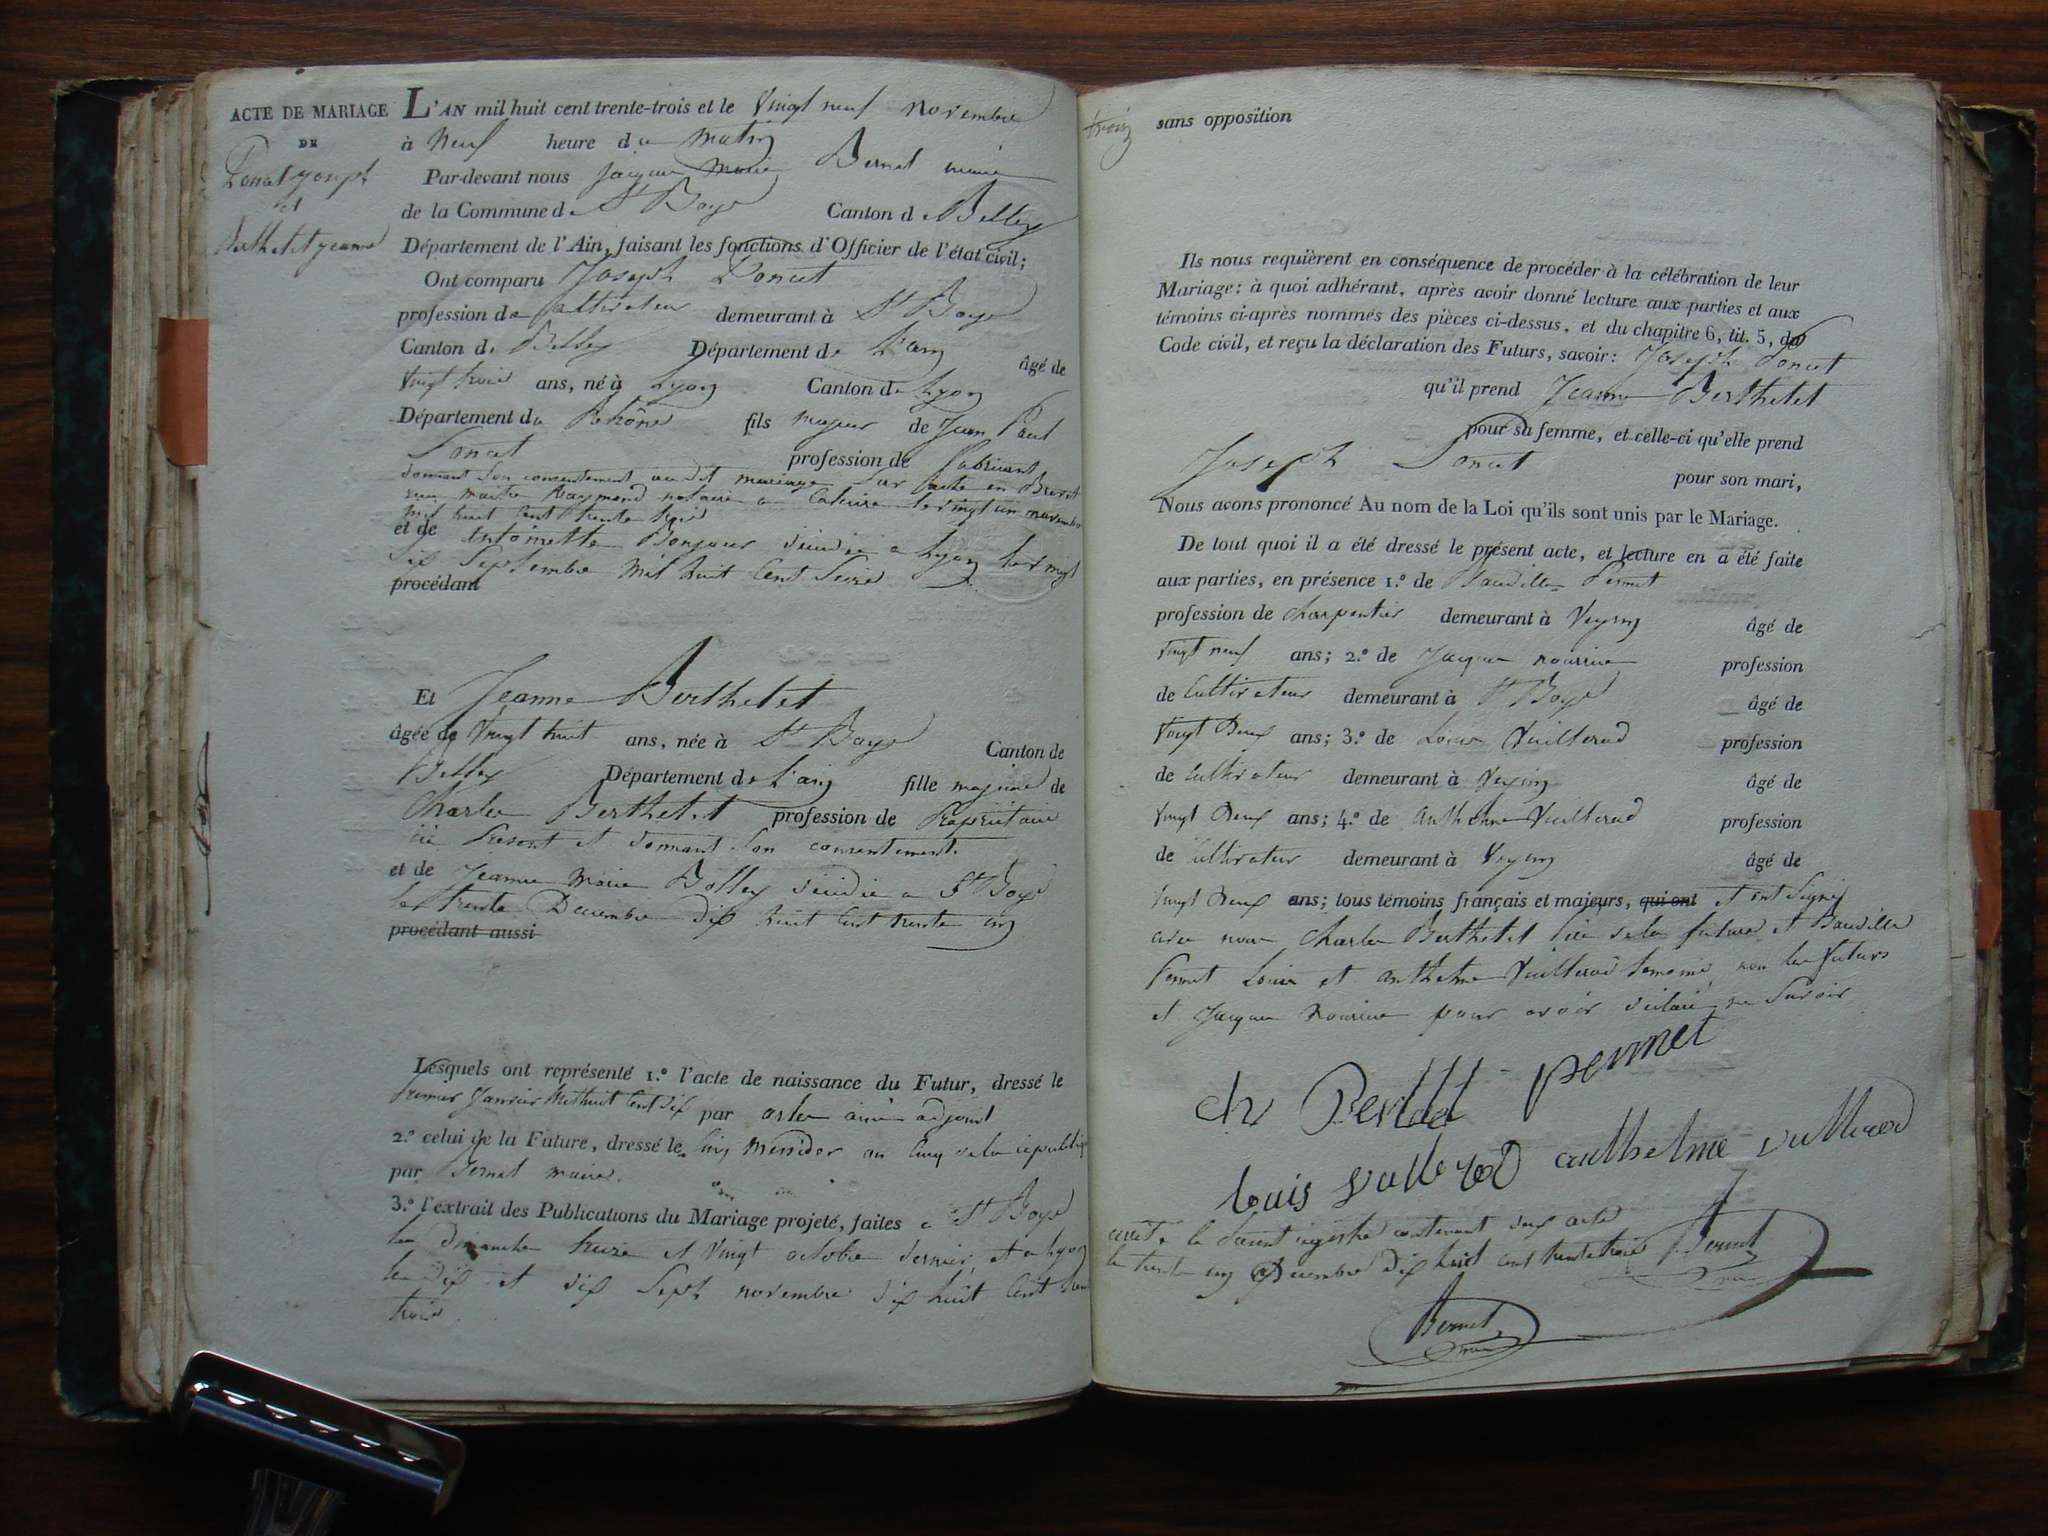 ACTE DE MARIAGE
DE
Poncet Joseph
et
Berthelet jeanne
L'AN mil huit cent trente-trois et le Vingt neuf novembre
à Neuf heure du matin
Par-devant nous jacques marie Bernet maire
de la Commune de St Boys Canton de Belley
Département de l'Ain, faisant les fonctions d'Officier de l'état civil;
Ont comparu Joseph Poncet
profession de Cultivateur demeurant à St Boys
Canton de Belley Département de L'ain âgé de
Vingt trois ans, né à Lyon Canton de Lyon
Département du Rhône fils majeur de Jean Paul
Poncet profession de fabricant
donnant son consentement audit mariage par acte en Brevet
reçu maitre Raymond notaire a Caluire le vingt un novembre
mil huit Cent trente trois
et de Antoinette Bonjour décédée a Lyon le vingt
six Septembre mil huit Cent Seize
procédant
Et Jeanne Berthelet
âgée de Vingt huit ans, née à St Boys Canton de
Belley Département de L'ain fille majeure de
Charles Berthelet profession de Propriétaire
ici Present et donnant Son consentement.
et de Jeanne Marie Bolley décédée a St Boys
le trente Decembre dix huit Cent trente un
procédant aussi
Lesquels ont représenté 1.º l'acte de naissance du Futur, dressé le
Premier Janvier Mil huit Cent dix par ainé adjoint
2.º celui de la Future, dressé le Cinq Messidor an Cinq de la republique
par Bernet maire.
3.º l'extrait des Publications du Mariage projeté, faites a St Boys
les dimanche treize et Vingt octobre dernier, et a Lyon
les dix et dix Sept novembre dix huit Cent trente
trois
trois sans opposition
Ils nous requièrent en conséquence de procéder à la célébration de leur
Mariage: à quoi adhérant, après avoir donné lecture aux parties et aux
témoins ci-après nommés des pièces ci-dessus, et du chapitre 6, tit. 5, du
Code civil, et reçu la déclaration des Futurs, savoir: Joseph Poncet
qu'il prend Jeanne Berthelet
pour sa femme, et celle-ci qu'elle prend
Joseph Poncet pour son mari,
Nous avons prononcé Au nom de la Loi qu'ils sont unis par le Mariage.
De tout quoi il a été dressé le présent acte, et lecture en a été faite
aux parties, en présence 1.º de Baudille Pernet
profession de Charpentier demeurant à Veyrin âgé de
vingt neuf ans; 2.º de Jacques nourrice profession
de Cultivateur demeurant à St Boys âgé de
Vingt Deux ans; 3.º de Louis Vuillerod profession
de Cultivateur demeurant à Veyrin âgé de
Vingt Deux ans; 4.º de anthelme Vuillerod profession
de Cultivateur demeurant à Veyrin âgé de
Vingt Deux ans; tous témoins français et majeurs, qui ont et ont Signé
avec nous Charles Berthelet père de la future et Baudille
Pernet Louis et anthelme Vuillerod temoins, non les futurs
et Jacques nourrice pour avoir déclaré ne Savoir
ch Berthelet pernnet
louis vulleroD anthelme vullierod
areté le present registre contenant deux acte
le trente un Decembre dix huit cent trente trois Bernet
maire
Bernet
maire